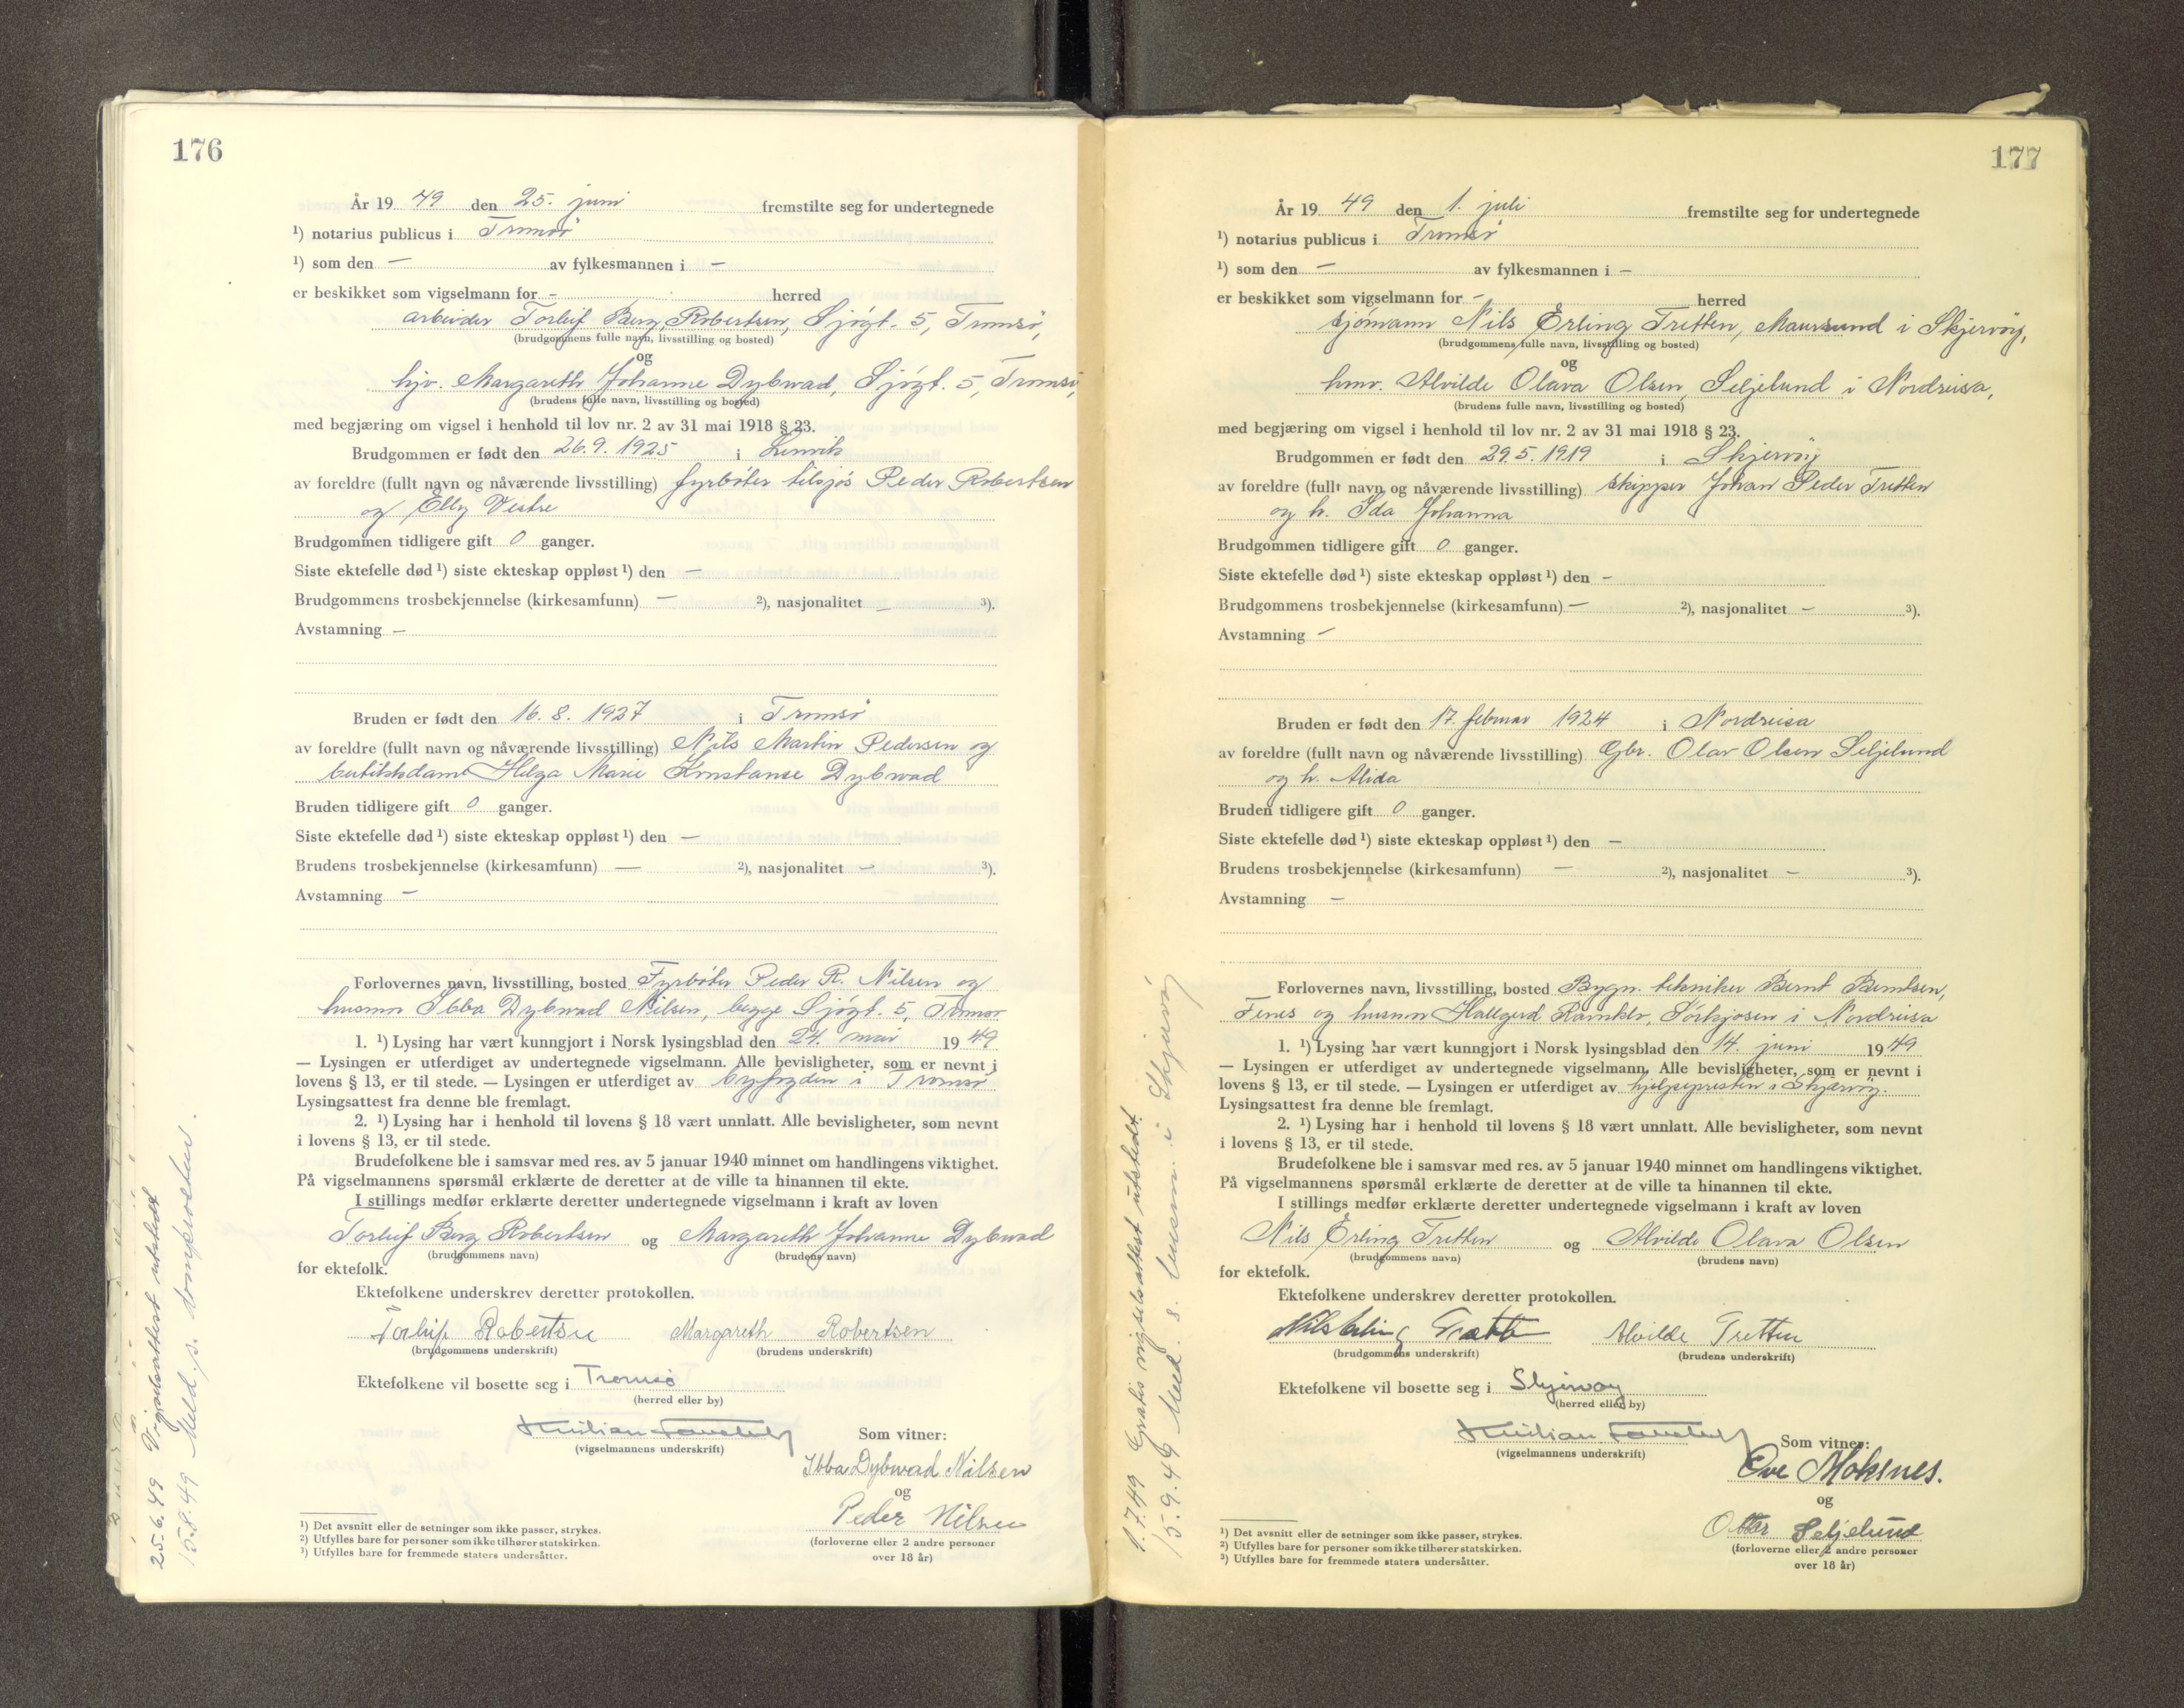 176
År 19 49 den 25. juni fremstilte seg for undertegnede
¹) notarius publicus i Tromsö
¹) som den — av fylkesmannen i —
er beskikket som vigselmann for - herred
arbeider Torleif Berg Robertsen, Sjögt. 5, Tromsö,
(brudgommens fulle navn, livsstilling og bosted)
og
hjv. Margareth Johanne Dybwad, Sjögt. 5, Tromsö,
(brudens fulle navn, livsstilling og bosted)
med begjæring om vigsel i henhold til lov nr. 2 av 31 mai 1918 § 23.
Brudgommen er født den 26.9.1925 i Lenvik
av foreldre (fullt navn og nåværende livsstilling) fyrböter tilsjös Peder Robertsen
og Elly Vestre
Brudgommen tidligere gift 0 ganger.
Siste ektefelle død ¹) siste ekteskap oppløst ¹) den —
Brudgommens trosbekjennelse (kirkesamfunn) — ²), nasjonalitet — ³).
Avstamning —
Bruden er født den 16.8.1927 i Tromsö
av foreldre (fullt navn og nåværende livsstilling) Nils Martin Pedersen og
butikkdame Helga Marie Konstanse Dybwad
Bruden tidligere gift 0 ganger.
Siste ektefelle død ¹) siste ekteskap oppløst ¹) den —
Brudens trosbekjennelse (kirkesamfunn) — ²), nasjonalitet — ³).
Avstamning —
Forlovernes navn, livsstilling, bosted Fyrböter Peder R. Nilsen og
husmor Ibba Dybwad Nilsen, begge Sjögt. 5, Tromsö
1. ¹) Lysing har vært kunngjort i Norsk lysingsblad den 24. mai 19 49
— Lysingen er utferdiget av undertegnede vigselmann. Alle bevisligheter, som er nevnt i
lovens § 13, er til stede. — Lysingen er utferdiget av byfogden i Tromsö
Lysingsattest fra denne ble fremlagt.
2. ¹) Lysing har i henhold til lovens § 18 vært unnlatt. Alle bevisligheter, som nevnt
i lovens § 13, er til stede.
Brudefolkene ble i samsvar med res. av 5 januar 1940 minnet om handlingens viktighet.
På vigselmannens spørsmål erklærte de deretter at de ville ta hinannen til ekte.
I stillings medfør erklærte deretter undertegnede vigselmann i kraft av loven
Torleif Berg Robertsen og Margareth Johanne Dybwad
(brudgommens navn) (brudens navn)
for ektefolk.
Ektefolkene underskrev deretter protokollen.
Torleif Robertsen Margareth Robertsen
(brudgommens underskrift) (brudens underskrift)
Ektefolkene vil bosette seg i Tromsö
(herred eller by)
(vigselmannens underskrift) Som vitner:
Ibba Dybwad Nilsen
og
Peder Nilsen
(forloverne eller 2 andre personer
over 18 år)
¹) Det avsnitt eller de setninger som ikke passer, strykes.
²) Utfylles bare for personer som ikke tilhører statskirken.
³) Utfylles bare for fremmede staters undersåtter.
25.6.49 Vigselsattest utstedt
15.8.49 Meld. s. domprosten.
177
År 19 49 den 1. juli fremstilte seg for undertegnede
¹) notarius publicus i Tromsö
¹) som den — av fylkesmannen i —
er beskikket som vigselmann for - herred
sjömann Nils Erling Tretten, Maursund i Skjervöy,
(brudgommens fulle navn, livsstilling og bosted)
og
hmv. Alvilde Olava Olsen, Seljelund i Nordreisa,
(brudens fulle navn, livsstilling og bosted)
med begjæring om vigsel i henhold til lov nr. 2 av 31 mai 1918 § 23.
Brudgommen er født den 29.5.1919 i Skjervöy
av foreldre (fullt navn og nåværende livsstilling) skipper Johan Peder Tretten
og h. Ida Johanna
Brudgommen tidligere gift 0 ganger.
Siste ektefelle død ¹) siste ekteskap oppløst ¹) den —
Brudgommens trosbekjennelse (kirkesamfunn) — ²), nasjonalitet — ³).
Avstamning —
Bruden er født den 17. februar 1924 i Nordreisa
av foreldre (fullt navn og nåværende livsstilling) Gbr. Olav Olsen Seljelund
og h. Alida
Bruden tidligere gift 0 ganger.
Siste ektefelle død ¹) siste ekteskap oppløst ¹) den —
Brudens trosbekjennelse (kirkesamfunn) — ²), nasjonalitet — ³).
Avstamning —
Forlovernes navn, livsstilling, bosted Bygn. tekniker Bernt Berntsen,
og husmor Hallgerd Sörkjosen i Nordreisa
1. ¹) Lysing har vært kunngjort i Norsk lysingsblad den 14. juni 19 49
— Lysingen er utferdiget av undertegnede vigselmann. Alle bevisligheter, som er nevnt i
lovens § 13, er til stede. — Lysingen er utferdiget av hjelpepresten i Skjervöy.
Lysingsattest fra denne ble fremlagt.
2. ¹) Lysing har i henhold til lovens § 18 vært unnlatt. Alle bevisligheter, som nevnt
i lovens § 13, er til stede.
Brudefolkene ble i samsvar med res. av 5 januar 1940 minnet om handlingens viktighet.
På vigselmannens spørsmål erklærte de deretter at de ville ta hinannen til ekte.
I stillings medfør erklærte deretter undertegnede vigselmann i kraft av loven
Nils Erling Tretten og Alvilde Olava Olsen
(brudgommens navn) (brudens navn)
for ektefolk.
Ektefolkene underskrev deretter protokollen.
Nils Erling Trætten Alvilde Tretten
(brudgommens underskrift) (brudens underskrift)
Ektefolkene vil bosette seg i Skjervøy
(herred eller by)
(vigselmannens underskrift) Som vitner:
Ove Moksnes.
og
Otter Seljelund
(forloverne eller 2 andre personer
over 18 år)
¹) Det avsnitt eller de setninger som ikke passer, strykes.
²) Utfylles bare for personer som ikke tilhører statskirken.
³) Utfylles bare for fremmede staters undersåtter.
1.7.49 Gratis vigselsattest utstedt.
15.9.49 Med. s. i Skjervöy